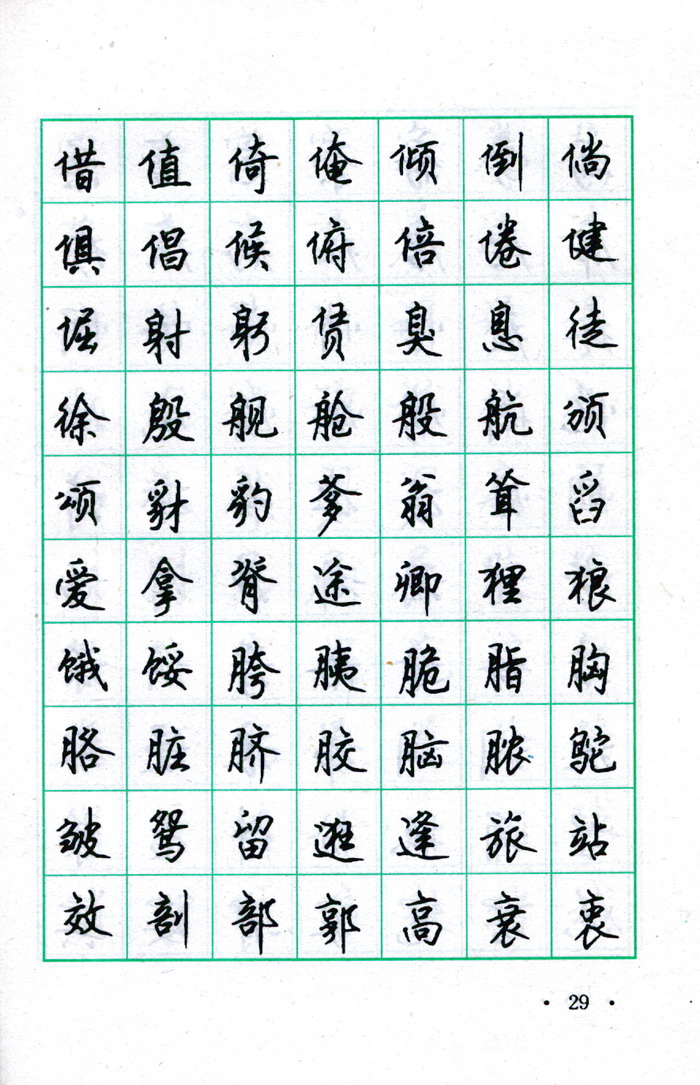 借值倚俺倾倒倘
惧倡候俯倍倦健
倔射躬赁臭息徒
徐殷舰舱般航颁
颂豺豹爹翁耸舀
爱拿脊途卿狸狼
饿馁胯胰脆脂胸
胳脏脐胶脑脓鸵
皱鸳留逛逢旅站
效剖部郭高衰衷
· 29 ·